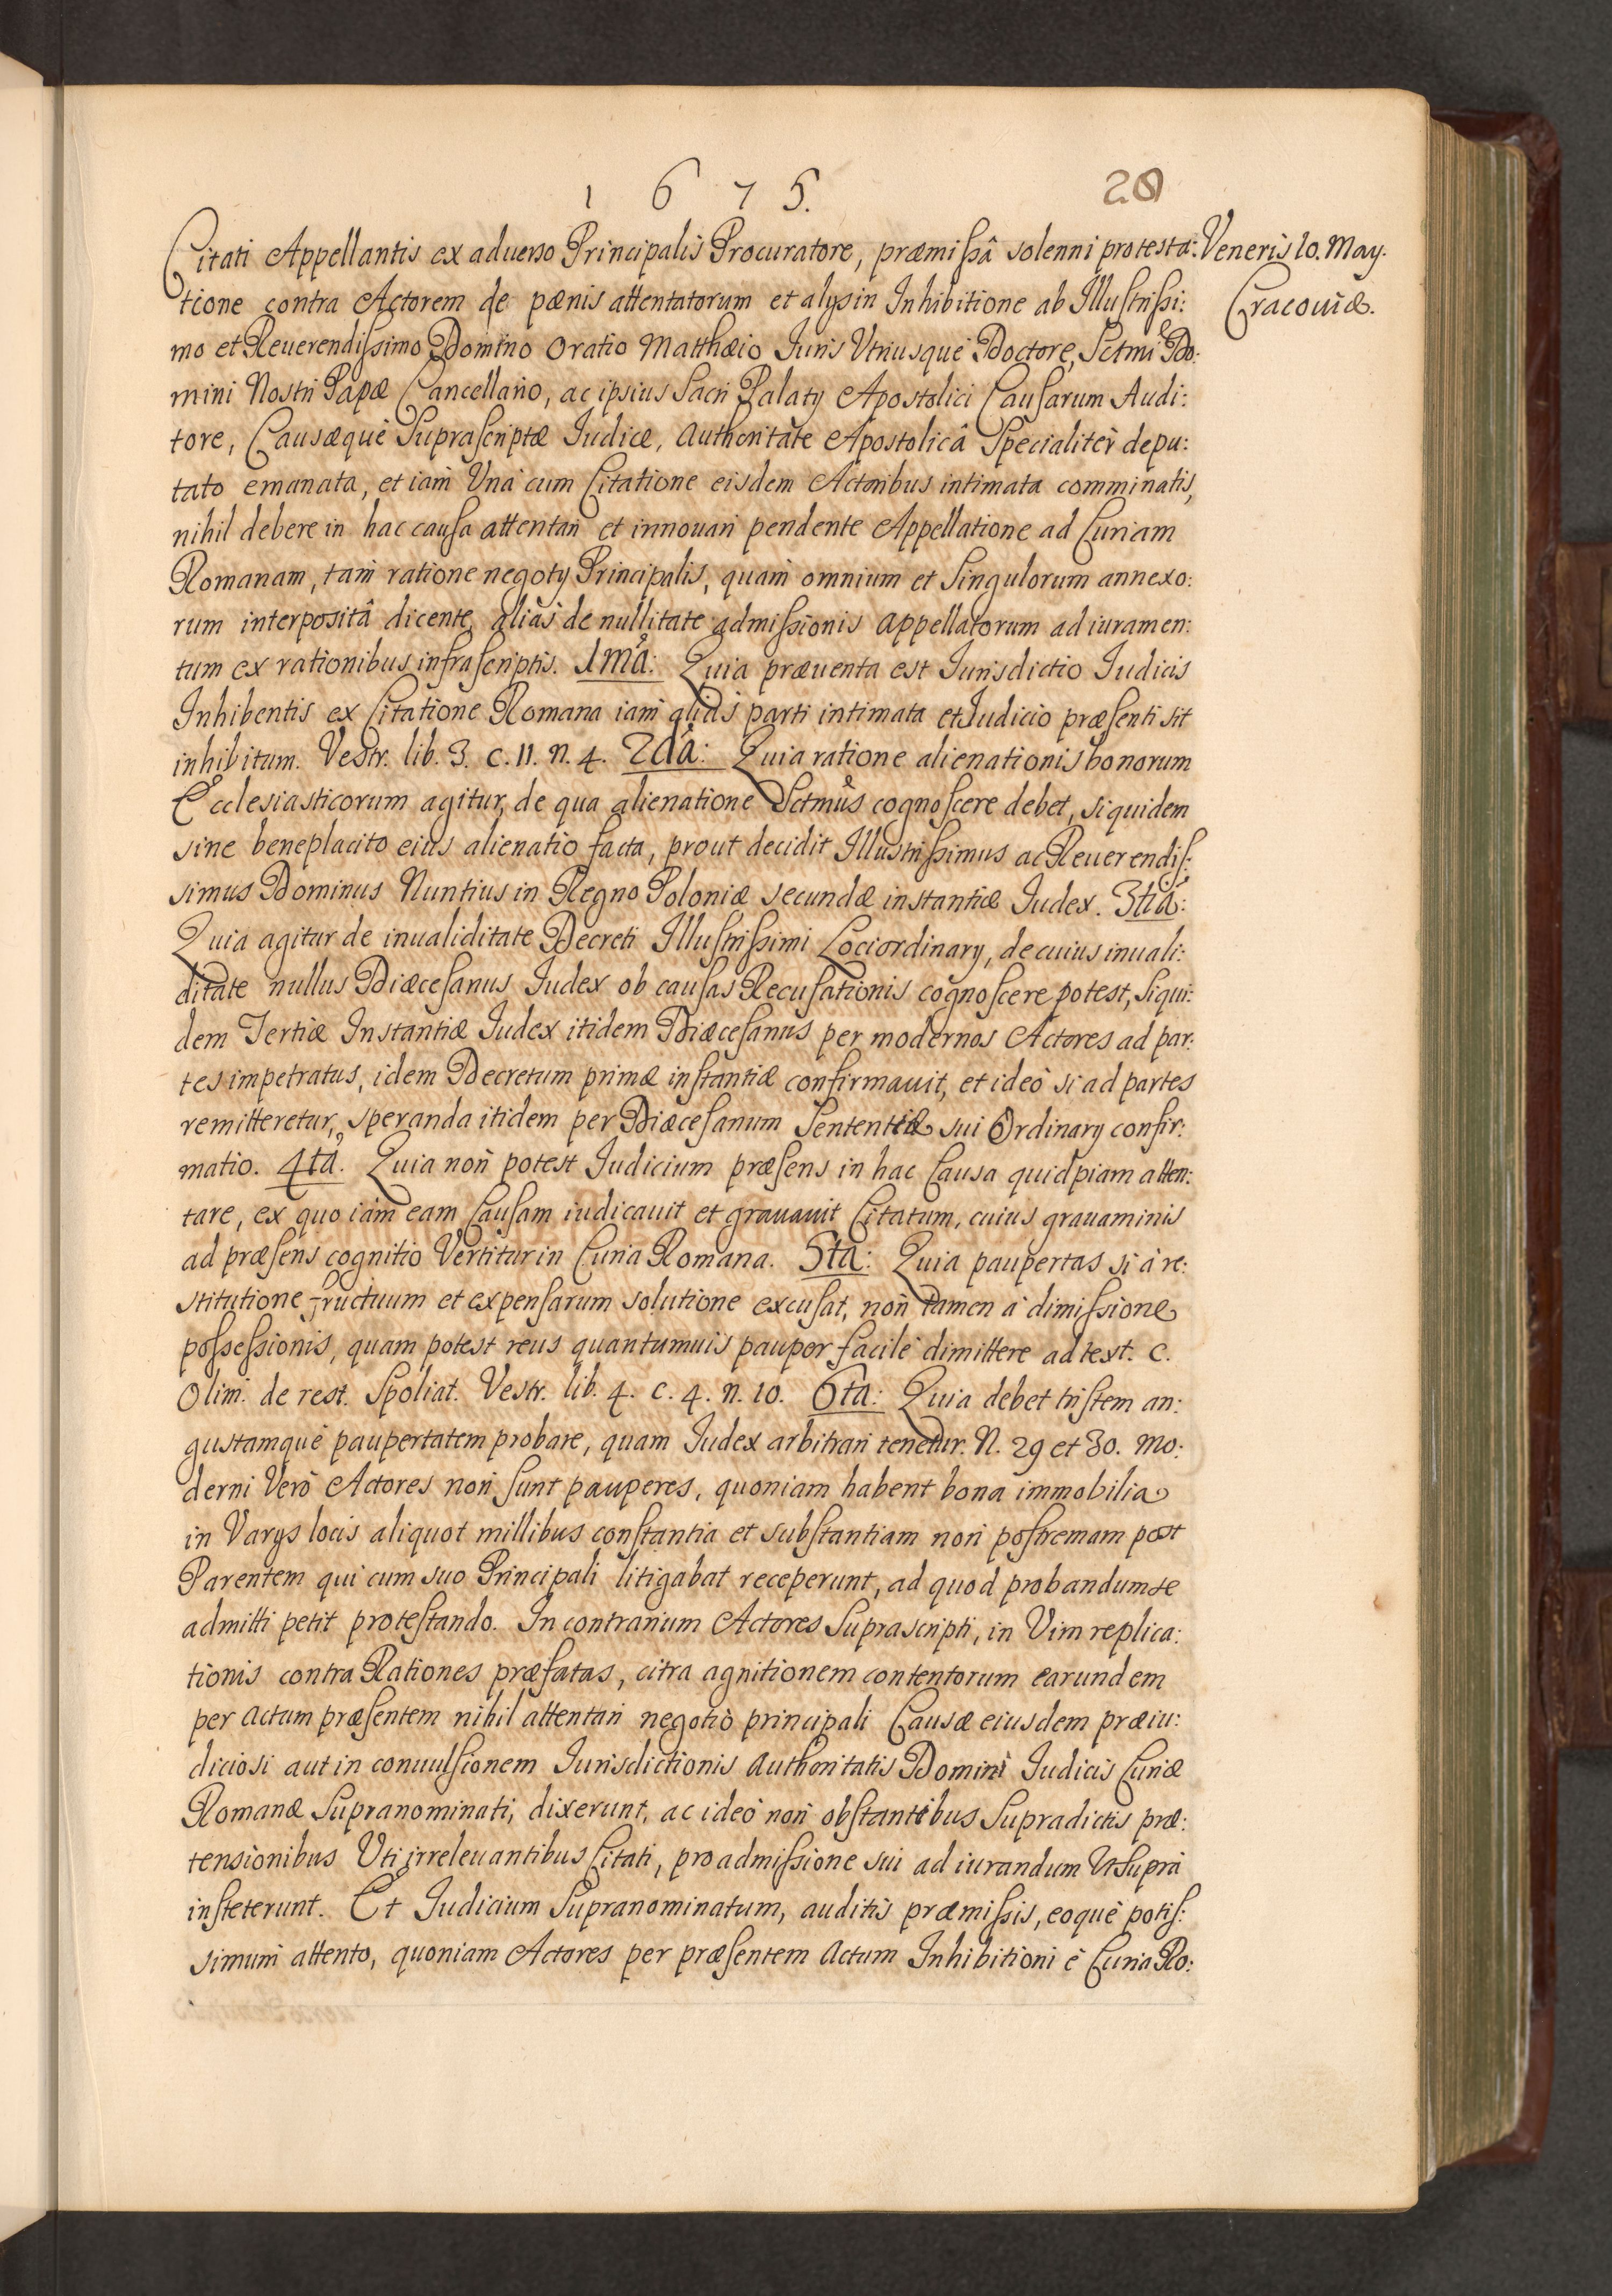 1675.
28
Citati Appellantis ex aduerso Principalis Procuratore, præmissâ solenni protesta:
Veneris 10. May.
Cracouiæ.
tione contra Actorem de pœnis attentatorum et alys in Inhibitione ab Illustrissi:
mo et Reuerendissimo Domino Oratio Matthæio Iuris Vtriusque Doctore, Sctmi Do:
mini Nostri Papæ Cancellario, ac ipsius Sacri Palaty Apostolici Causarum Audi:
tore, Causæquè Suprascriptæ Iudice, Authoritate Apostolicâ Specialitèr depu:
tato emanata, et iam Vnà cum Citatione eisdem Actoribus intimata comminatis,
nihil debere in hac causa attentari et innouari pendente Appellatione ad Curiam
Romanam, tam ratione negoty Principalis, quam omnium et Singulorum annexo:
rum interpositâ dicente, aliàs de nullitate admissionis Appellatorum ad iuramen:
tum ex rationibus infrascriptis. 1mâ: Quia præuenta est Iurisdictio Iudicis
Inhibentis ex Citatione Romana iam aliàs parti intimata et Iudicio præsenti sit
inhibitum. Vestr. lib. 3. c. 11. n. 4. 2dâ: Quia ratione alienationis bonorum
Ecclesiasticorum agitur, de qua alienatione Sctmus cognoscere debet, siquidem
sine beneplacito eius alienatio facta, prout decidit Illustrissimus ac Reuerendis:
simus Dominus Nuntius in Regno Poloniæ secundæ instantiæ Iudex. 3tiâ:
Quia agitur de inualiditate Decreti Illustrissimi Lociordinary, de cuius inuali:
ditate nullus Diæcesanus Iudex ob causas Recusationis cognoscere potest, Siqui:
dem Tertiæ Instantiæ Iudex itidem Diæcesanus per modernos Actores ad par:
tes impetratus, idem Decretum primæ instantiæ confirmauit, et ideò si ad partes
remitteretur, speranda itidem per Diæcesanum Sententiæ sui Ordinary confir:
matio. 4tâ. Quia non potest Iudicium præsens in hac Causa quidpiam atten:
tare, ex quo iam eam Causam iudicauit et grauauit Citatum, cuius grauaminis
ad præsens cognitio Vertitur in Curia Romana. 5ta: Quia paupertas si à re:
stitutione fructuum et expensarum solutione excusat, non tamen à dimissione
possessionis, quam potest reus quantumuis pauper facilè dimittere ad text. c.
Olim. de rest. Spoliat. Vestr. lib. 4. c. 4. n. 10. 6ta: Quia debet tristem an:
gustamquè paupertatem probare, quam Iudex arbitrari tenetur. N. 29 et 30. Mo:
derni Verò Actores non sunt pauperes, quoniam habent bona immobilia
in Varys locis aliquot millibus constantia et substantiam non postremam post
Parentem qui cum suo Principali litigabat receperunt, ad quod probandum se
admitti petit protestando. In contrarium Actores Suprascripti, in Vim replica:
tionis contra Rationes præfatas, citra agnitionem contentorum earundem
per Actum præsentem nihil attentari negotio principali Causæ eiusdem præiu:
diciosi aut in conuulsionem Iurisdictionis Authoritatis Domini Iudicis Curiæ
Romanæ Supranominati, dixerunt, ac ideò non obstantibus Supradictis præ:
tensionibus Vti irreleuantibus Citati, pro admissione sui ad iurandum Vt Suprà
insteterunt. Et Iudicium Supranominatum, auditis præmissis, eoquè potis:
simum attento, quoniam Actores per præsentem Actum Inhibitioni è Curia Ro: